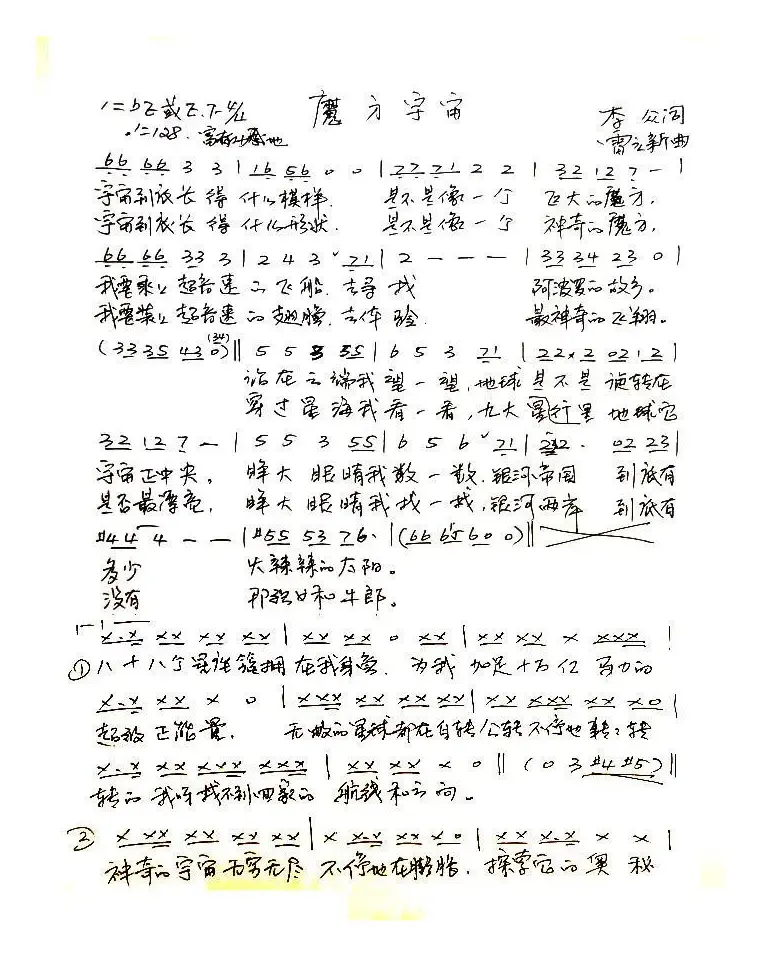 魔方宇宙
1=bE或E.F 4/4
李众词
♩=128.
雷立新曲
66 66 3 3 | 16 56 0 0 | 77 71 2 2 | 32 12 7 - |
宇宙到底长得 什么模样. 是不是像一个 飞大的魔方.
宇宙到底长得 什么形状. 是不是像一个 神奇的魔方.
66 66 33 3 | 2 4 3 ˇ 71 | 2 - - - | 33 34 23 0 |
我要乘上超音速的飞船. 去寻找 阿波罗的故乡。
我要装上超音速的翅膀. 去体验. 最神奇的飞翔。
(33 35 43 0) (34) || 5 5 3 35 | 6 5 3 71 | 22·2 02 12 |
站在云端我望一望, 地球是不是旋转在
穿过星海我看一看, 九大行星里地球它
32 12 7 - | 5 5 3 55 | 6 5 6 ˇ 71 | 22· 02 23 |
宇宙正中央. 睁大眼睛我数一数. 银河帝国 到底有
是否最漂亮, 睁大眼睛我找一找, 银河两岸 到底有
#4 4 4 - - | #55 53 76· | (66 65 60 0) ||
多少 火辣辣的太阳。
没有 那织女和牛郎。
x·x xx xx xx | xx xx 0 xx | xx xx x xxx |
① 八十八个星座簇拥在我身旁. 为我 加足十万亿 马力的
x·x xx x 0 | xxx xx xx xx | xx xxx xx x0 |
超级正能量. 无数的星球都在自转公转不停地转:转
x·x xx xxx xxx | xx xx x 0 || (0 3 #4 #5) ||
转的我呀找不到回家的 航线和方向。
② x xxx xx xx xx | x x·x xx x0 | xx x·x x x |
神奇的宇宙无穷无尽 不停地在膨胀. 探索它的奥秘